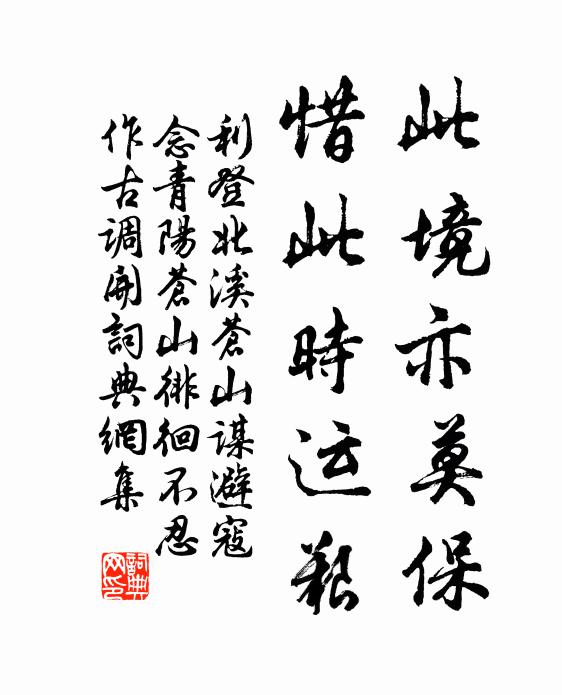 此境亦莫保
惜此時运艱
利登北溪蒼山謀避寇
念青陽蒼山徘徊不忍
作古調開詞典網集
詞典网印